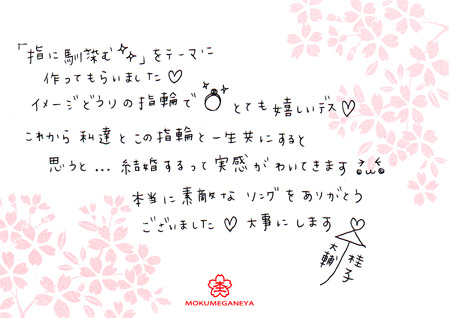 「指に馴染む✧✧」をテーマに
作ってもらいました♡
イメージどうりの指輪で とても嬉しいデス♡
これから私達とこの指輪と一生共にすると
思うと...結婚するって実感がわいてきます
本当に素敵なリングをありがとう
ございました♡大事にします
大輔 桂子
MOKUMEGANEYA